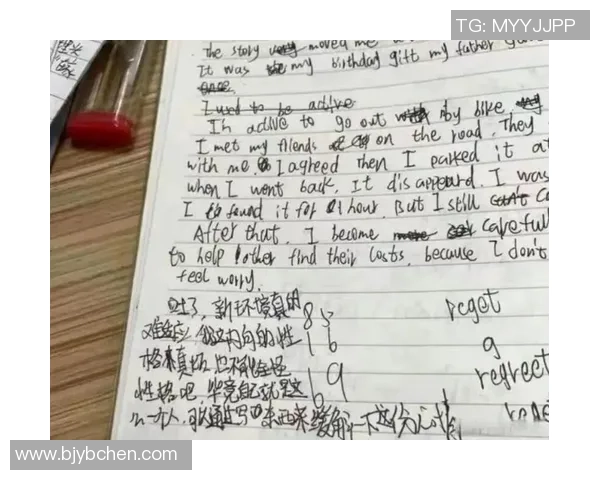 TG: MYYJJPP
The story very moved me
It was my birthday gift my father
I used to be active
In active to go out by bike.
I met my friends on the road. They
with me. I agreed Then I parked it at
when I went back, It disappeard. I was
I found it for 1 hour. But I still can't
After that, I become careful
to help other find their losts, because I don't
feel worry.
对了,新环境真的
8 5 reget
难适应,我这内向的性
1 6 g
格真 也不能全怪
1 9 regreet
性格吧,毕竟自己就是这
6
么一个人,可以通过写东西来缓解一下这份
www.bjybchen.com